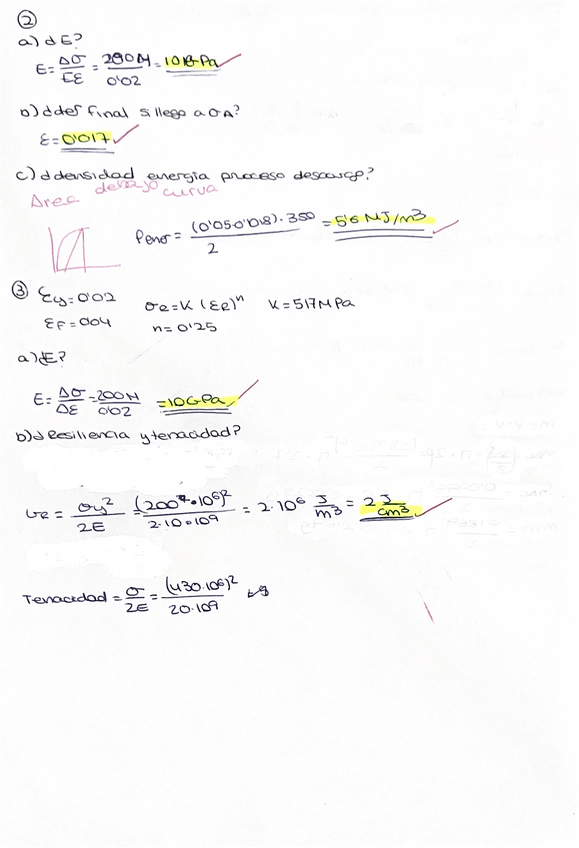 ②
a) ¿E?
E = Δσ/Eε = 290M/0'02 = 1018Pa
b) ¿def final si llego a σA?
ε = 0'017
c) ¿densidad energía proceso descarga?
Area debajo curva
Pener = (0'05-0'018)·350/2 = 5'6 MJ/m³
③ εy = 0'02 σR = K (εR)ⁿ K = 517MPa
εF = 0'04 n = 0'25
a) ¿E?
E = Δσ/Δε = 200M/0'02 = 10GPa
b) ¿Resiliencia y tenacidad?
Ur = σy²/2E = (200·10⁶)²/2·10·10⁹ = 2·10⁶ J/m³ = 2 J/cm³
Tenacidad = σ/2E = (430·10⁶)²/20·10⁹